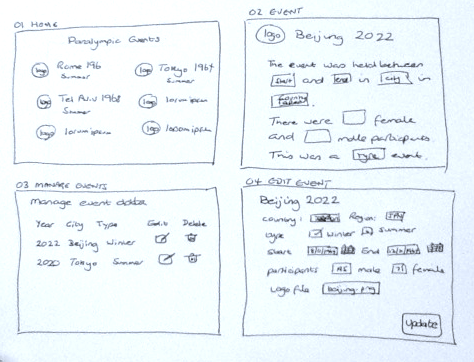 01 HOME
Paralympic Events
logo Rome 196 Summer
logo Tokyo 1964 Summer
logo Tel Aviv 1968 Summer
logo lorem ipsum
logo lorem ipsum
logo lorem ipsum
02 EVENT
logo Beijing 2022
The event was held between
start and end in city in
There were female
and male participants.
This was a type event.
03 MANAGE EVENTS
Manage event data
Year City Type Edit Delete
2022 Beijing Winter
2020 Tokyo Summer
04 EDIT EVENT
Beijing 2022
country: Region:
type winter summer
start End
participants male female
Logo file beijing.png
Update